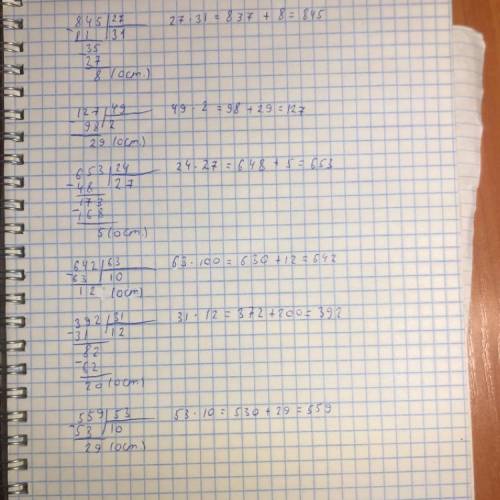 845 | 27    27 · 31 = 837 + 8 = 845
-81 | 31
35
27
8 (ост.)
127 | 49    49 · 2 = 98 + 29 = 127
-98 | 2
29 (ост)
653 | 24    24 · 27 = 648 + 5 = 653
-48 | 27
173
-168
5 (ост.)
642 | 63    63 · 100 = 630 + 12 = 642
-63 | 10
12 (ост)
392 | 31    31 · 12 = 372 + 200 = 392
-31 | 12
82
-62
20 (ост)
559 | 53    53 · 10 = 530 + 29 = 559
-53 | 10
29 (ост)